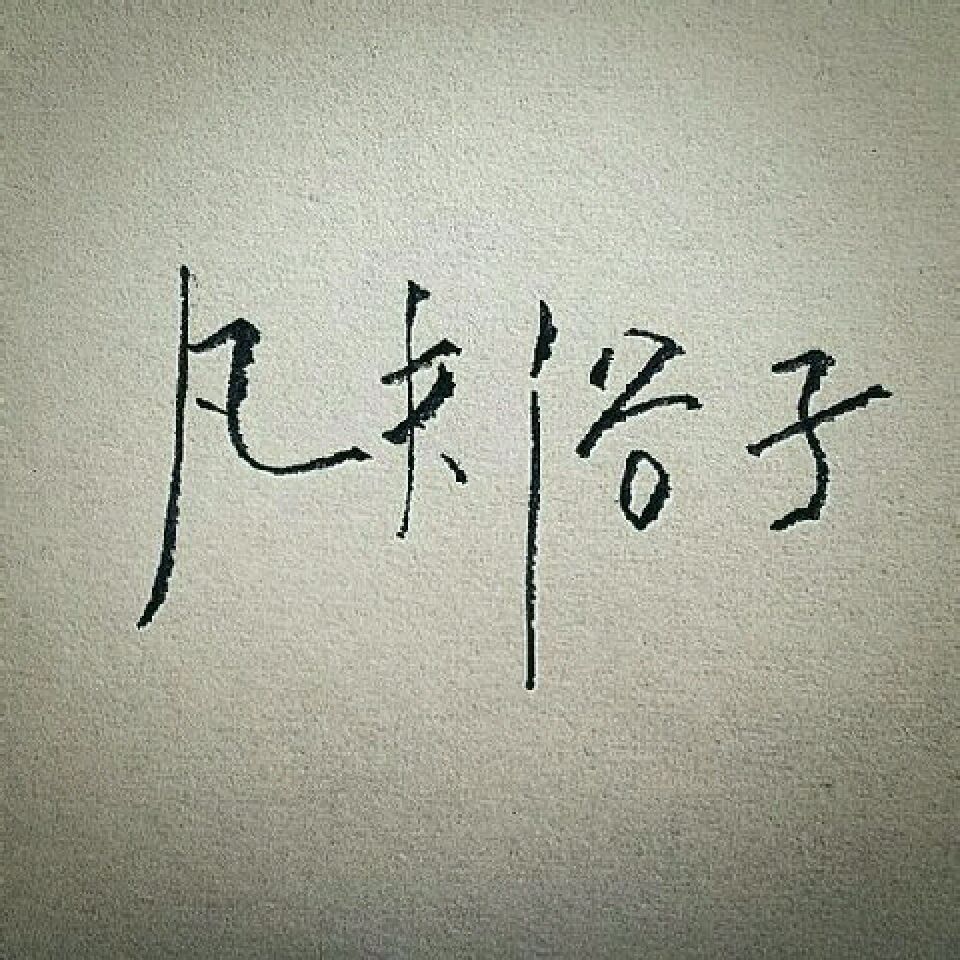 凡夫俗子